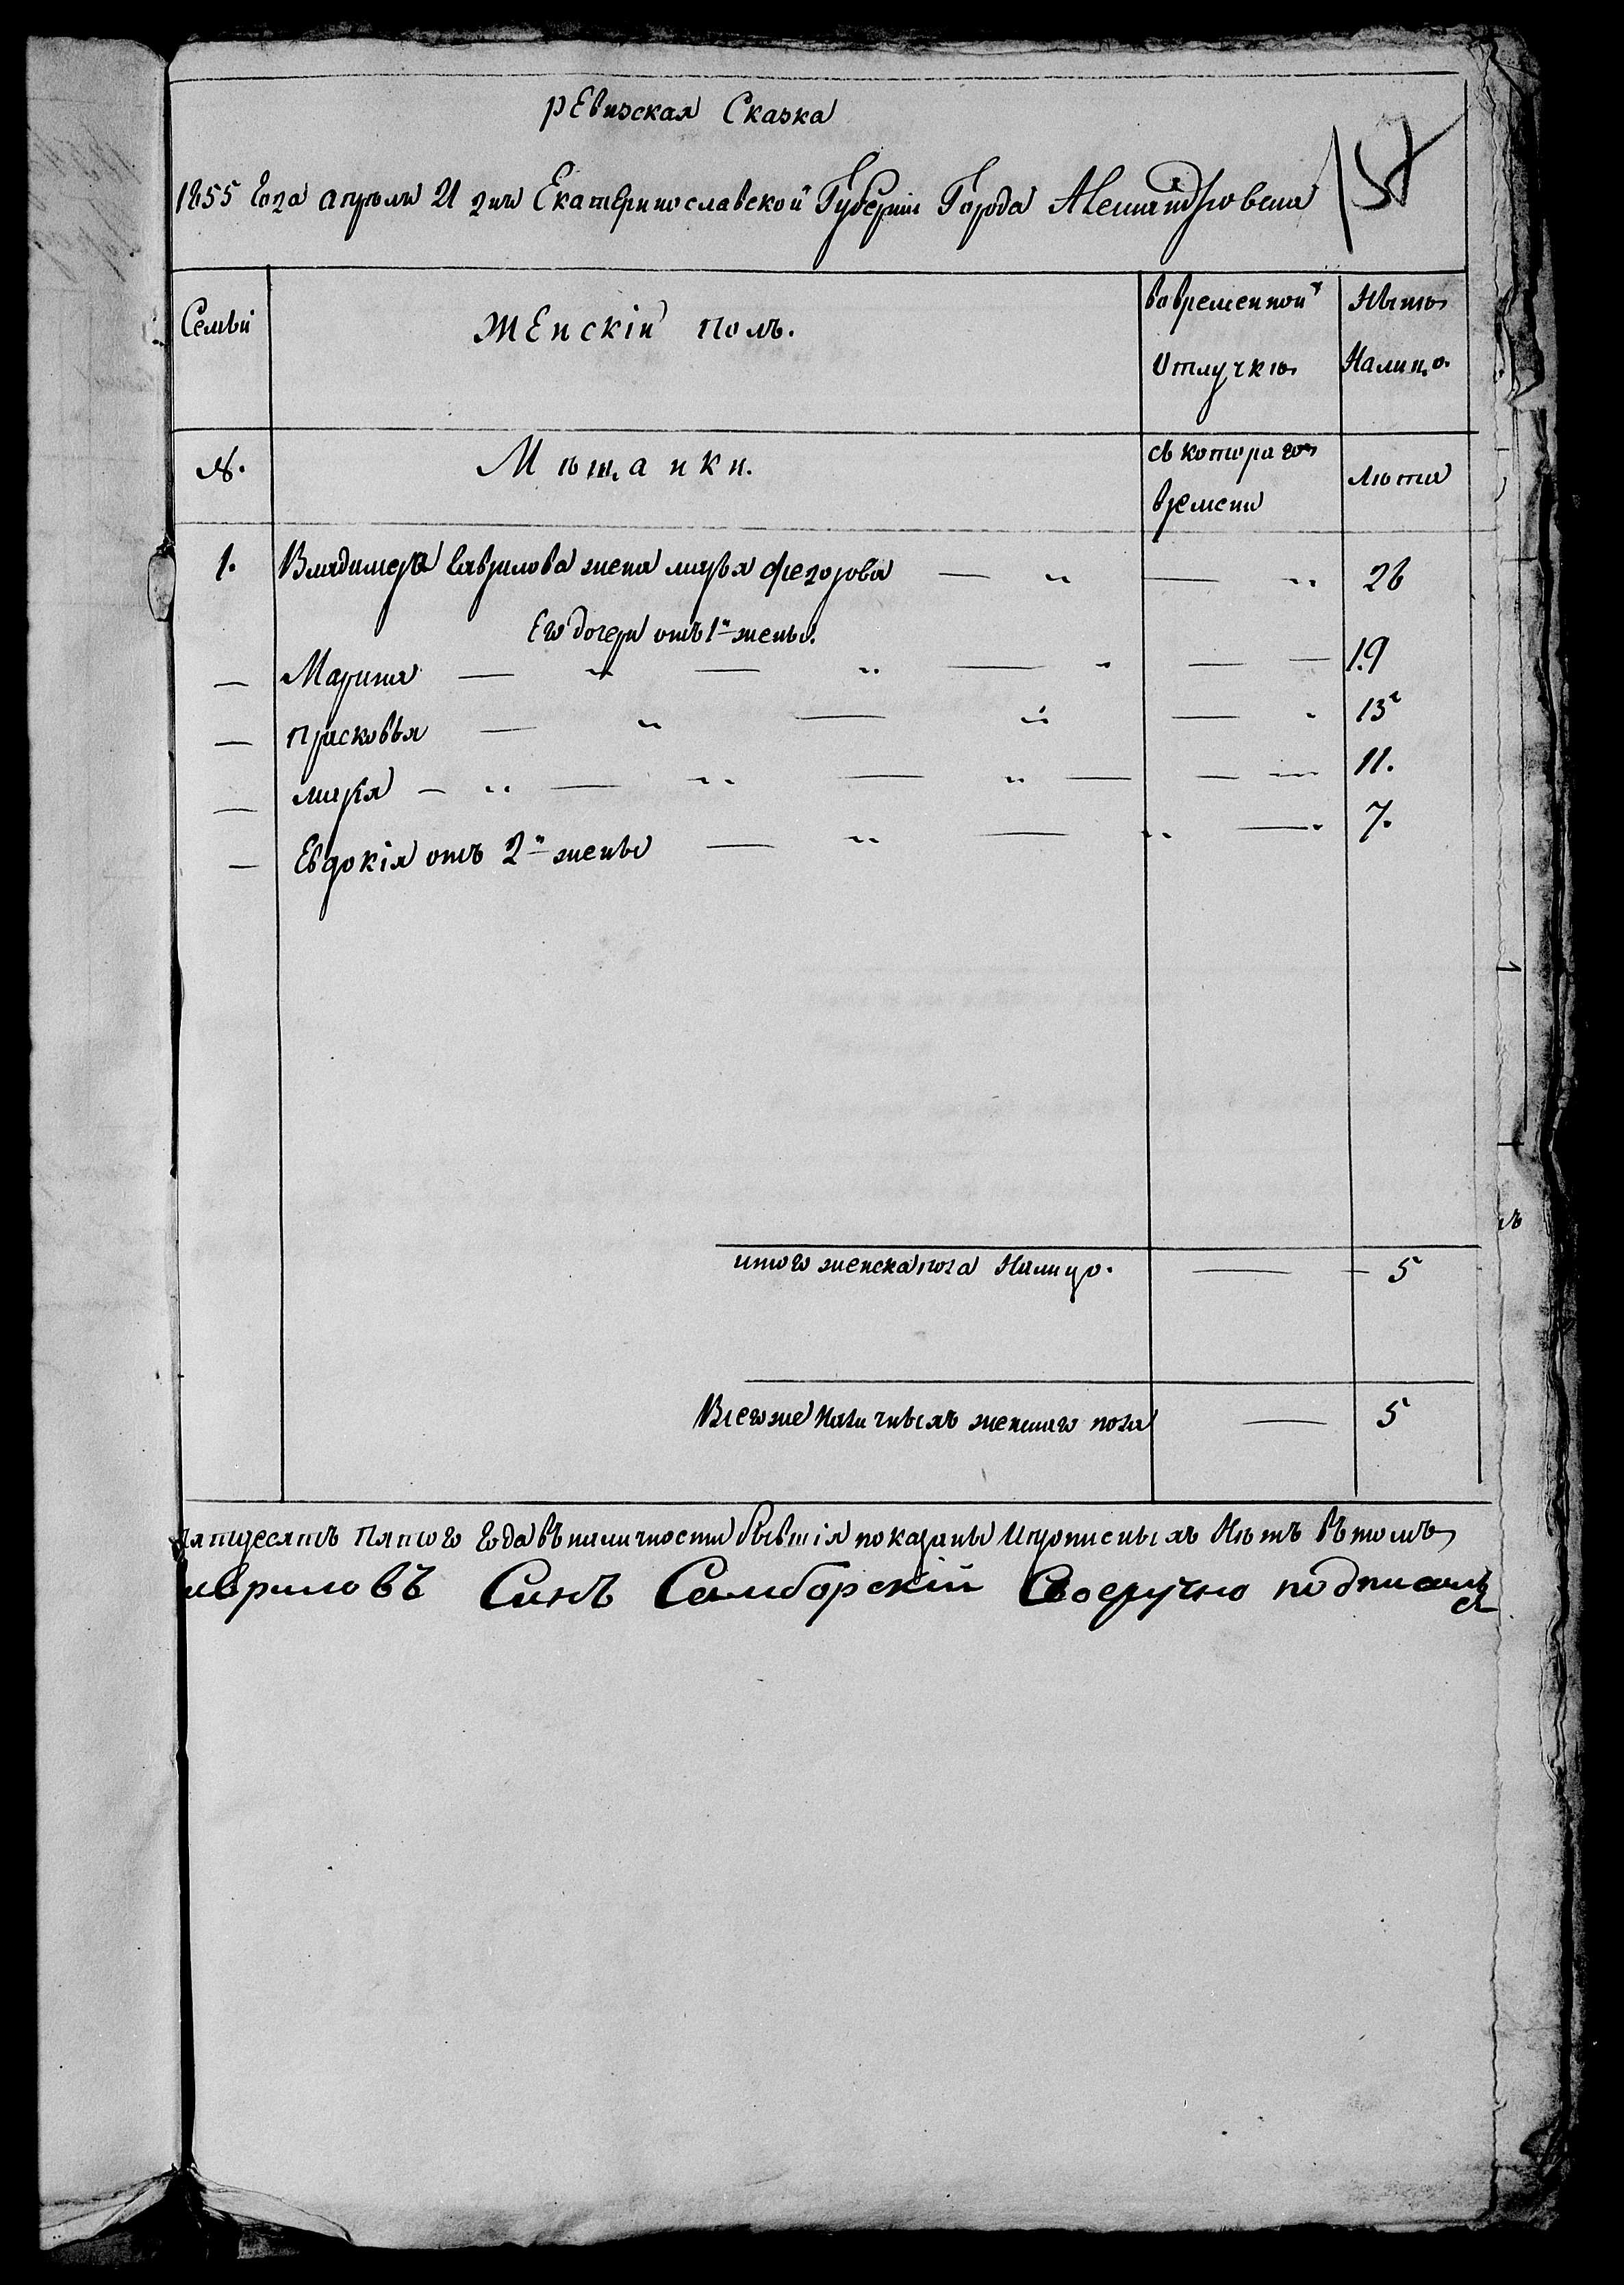 ревизская Сказка
1855 Года апреля 21 дня Екатеринославской Губернiи Города Александровска
Семьи
Женскiй полъ.
вовременной
Отлучкѣ
Нынѣ
Налицо.
№.
Мѣщанки.
съ котораго
времени
Лѣта
1. Владимера Гаврилова жена марья федорова — „ — „ 26
Его дочери отъ 1й жены.
— Марина — „ — „ — „ — — 19
— прасковья — „ — „ — „ 13
— марiя — „ — „ — „ — — „ 11.
— Евдокiя отъ 2й жены — „ — „ — 7.
итого женска пола Налицо. — 5
Всегоже Наличныхъ женскаго пола — 5
пятдесятъ пятого Года въ наличности бывшiя показаны Ипрописныхъ Нѣтъ въ томъ
авриловъ Синъ Самборскiй Своеручно подписался